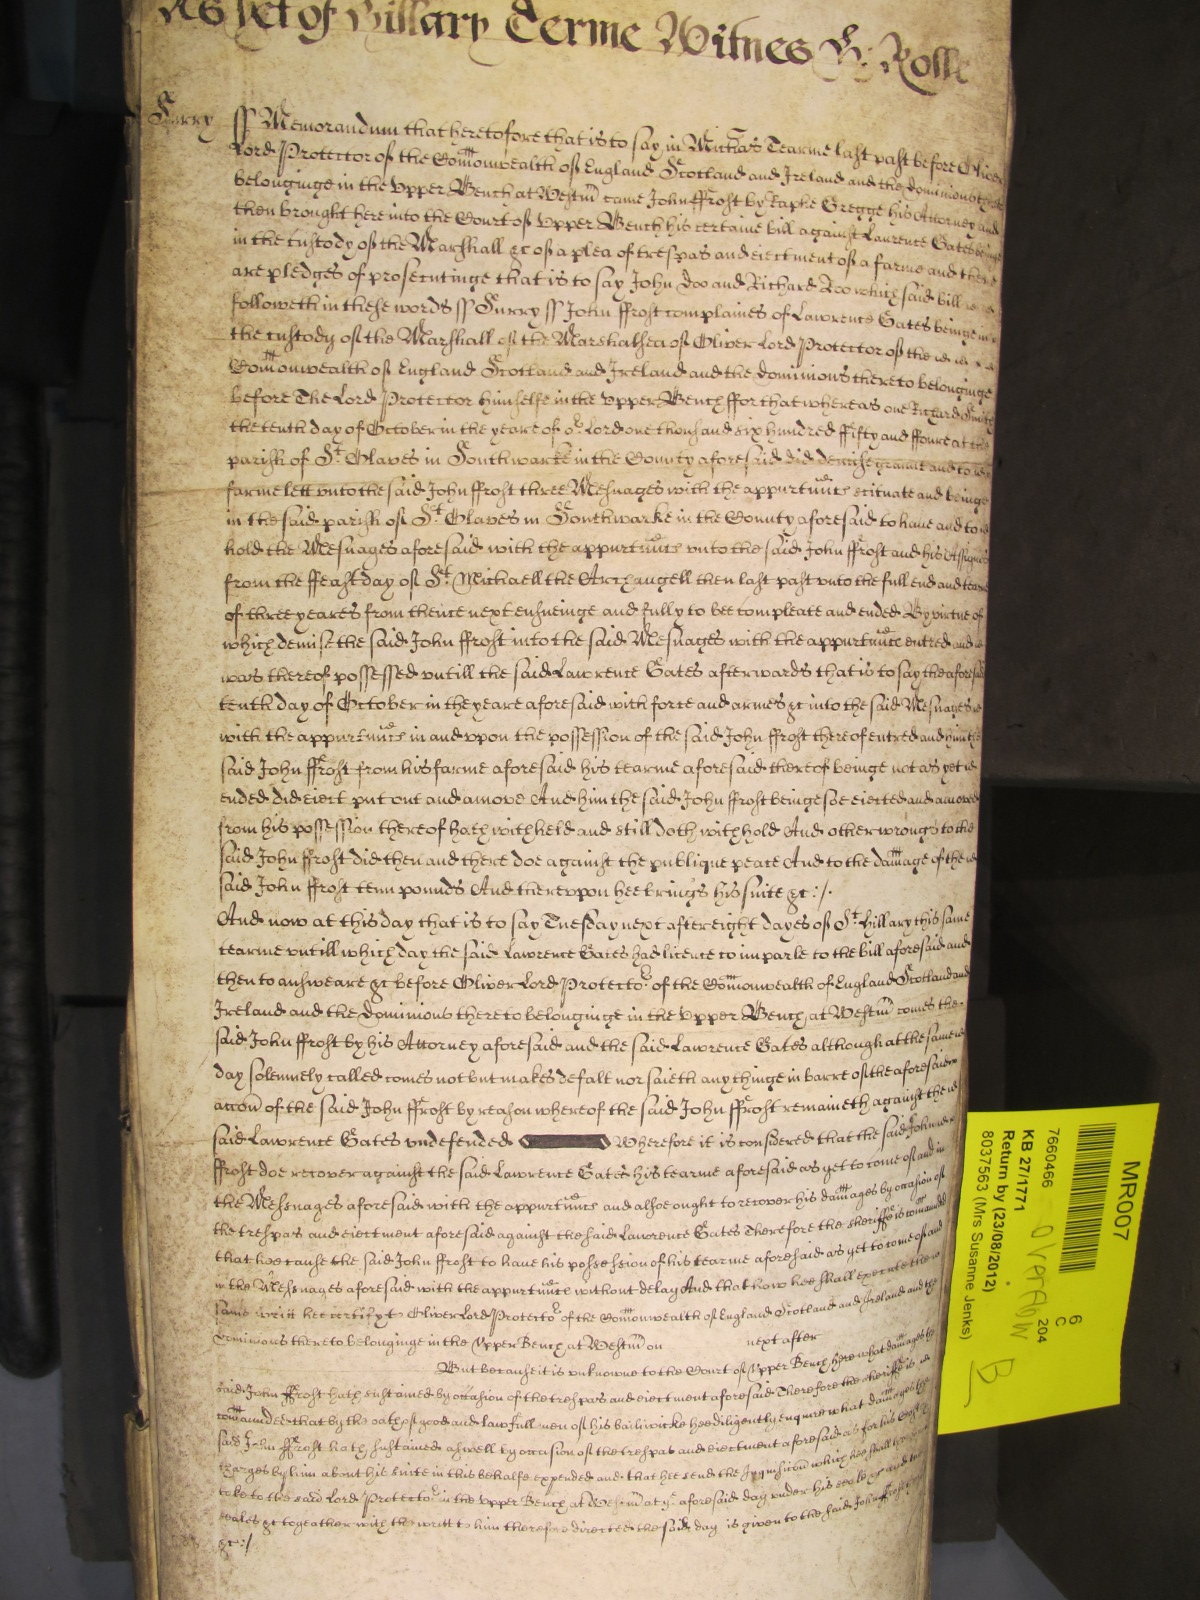 As yet of Hillary Terme Witnes H: Rolle
Surry ss Memorandum that heretofore that is to say in Michas Tearme last past before Oliver
Lord Protector of the Comonwealth of England Scotland and Ireland and the dominions thereto
belonginge in the Upper Bench at Westm came John ffrost by Raphe Gregge his Attorney and
then brought here into the Court of Upper Bench his certaine bill against Laurence Gates beinge
in the custody of the Marshall &c of a plea of trespas and eiectment of a farme and there
are pledges of prosecutinge that is to say John Doo and Richard Roo which said bill
followeth in these words ss Surry ss John ffrost complaines of Lawrence Gates beinge in
the custody of the Marshall of the Marshalsea of Oliver Lord Protector of the
Comonwealth of England Scotland and Ireland and the dominions thereto belonginge
before The Lord Protector himselfe in the Upper Bench ffor that whereas one Richard Smith
the tenth day of October in the yeare of or Lord one thousand six hundred ffifty and ffoure at the
parish of St Olaves in Southwarke in the County aforesaid did demise graunt and to
farme lett unto the said John ffrost three Mesuages with the appurtunces scituate and beinge
in the said parish of St Olaves in Southwarke in the County aforesaid to haue and to
hold the Mesuages aforesaid with the appurtunces unto the said John ffrost and his Assignes
from the ffeast day of St Michaell the Archangell then last past unto the full end and tearme
of three yeares from thence next ensueinge and fully to bee compleate and ended By virtue of
which demise the said John ffrost into the said Mesuages with the appurtunces entred and
was thereof possessed untill the said Lawrence Gates afterwards that is to say the aforesaid
tenth day of October in the yeare aforesaid with force and armes &c into the said Mesuages
with the appurtunces in and upon the possession of the said John ffrost thereof entred and him the
said John ffrost from his farme aforesaid his tearme aforesaid thereof beinge not as yet
ended did eiect put out and amove And him the said John ffrost beinge soe eiected and amoved
from his possession thereof hath withheld and still doth withhold And other wrongs to the
said John ffrost did then and there doe against the publique peace And to the damage of the
said John ffrost tenn pounds And thereupon hee brings his suite &c:/.
And now at this day that is to say Tuesday next after eight dayes of St Hillary this same
tearme untill which day the said Lawrence Gates had licence to imparle to the bill aforesaid and
then to answeare &c before Oliver Lord Protector of the Comonwealth of England Scotland and
Ireland and the dominions thereto belonginge in the Upper Bench at Westm comes the
said John ffrost by his Attorney aforesaid and the said Lawrence Gates although at the same
day solemnely called comes not but makes defalt nor saieth any thinge in barre of the aforesaid
accon of the said John ffrost by reason whereof the said John ffrost remaineth against the
said Lawrence Gates undefended Wherefore it is considered that the said John
ffrost doe recover against the said Lawrence Gates his tearme aforesaid as yet to come of and in
the Messuages aforesaid with the appurtunces and alsoe ought to recover his damages by occasion of
the trespas and eiectment aforesaid against the said Lawrence Gates Therefore the sheriffe is comanded
that hee cause the said John ffrost to haue his possession of his tearme aforesaid as yet to come of and
in the Messuages aforesaid with the appurtunces without delay And that how hee shall execute the
same writt hee certify to Oliver Lord Protector of the Comonwealth of England Scotland and Ireland and the
dominions thereto belonginge in the Upper Bench at Westm on next after
But because it is unknowne to the Court of Upper Bench here what damages the
said John ffrost hath sustained by occasion of the trespas and eiectment aforesaid Therefore the sheriffe is
comaunded that by the oath of good and lawfull men of his bailiwicke hee diligently enquire what damages the
said John ffrost hath sustained aswell by occasion of the trespas and eiectment aforesaid as for his Costs
charges by him about his suite in this behalfe expended and that hee send the Inquisicon which hee shall thereupon
take to the said Lord Protector in the Upper Bench at Westm at ye aforesaid day under his seale &c and the
seales &c togeather with the writt to him therefore directed the same day is given to the said John ffrost
&c:/
MR007
6
C
204
7660466
overaw
KB 27/1771
Return by (23/08/2012)
8037563 (Mrs Susanne Jenks)
B